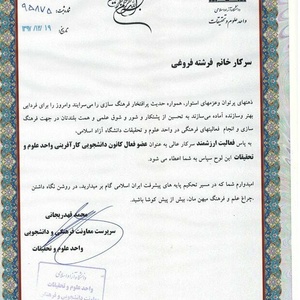 دانشگاه آزاد اسلامی
واحد علوم و تحقیقات
۹۵۸۷۵
تاریخ
سرکار خانم فرشته فروغی
ذهنهای پرتوان وعزمهای استوار، همواره حدیث پرافتخار فرهنگ سازی را می‌سرایند وامروز را برای فردایی
بهتر وسازنده، آماده می‌سازند به تحسین از پشتکار و شور و شوق علمی و همت بلندتان در جهت فرهنگ
سازی و انجام فعالیتهای فرهنگی در واحد علوم و تحقیقات دانشگاه آزاد اسلامی،
به پاس فعالیت ارزشمند سرکار عالی به عنوان عضو فعال کانون دانشجویی کارآفرینی واحد علوم و
تحقیقات این لوح سپاس به شما اعطاء می شود.
امیدوارم شما که در مسیر تحکیم پایه های پیشرفت ایران اسلامی گام بر میدارید، در روشن نگاه داشتن
چراغ علم و فرهنگ میهن مان، بیش از پیش کوشا باشید.
محمد فهدریجانی
سرپرست معاونت فرهنگی و دانشجویی
واحد علوم و تحقیقات
دانشگاه آزاد اسلامی
واحد علوم و تحقیقات
معاونت دانشجویی و فرهنگی